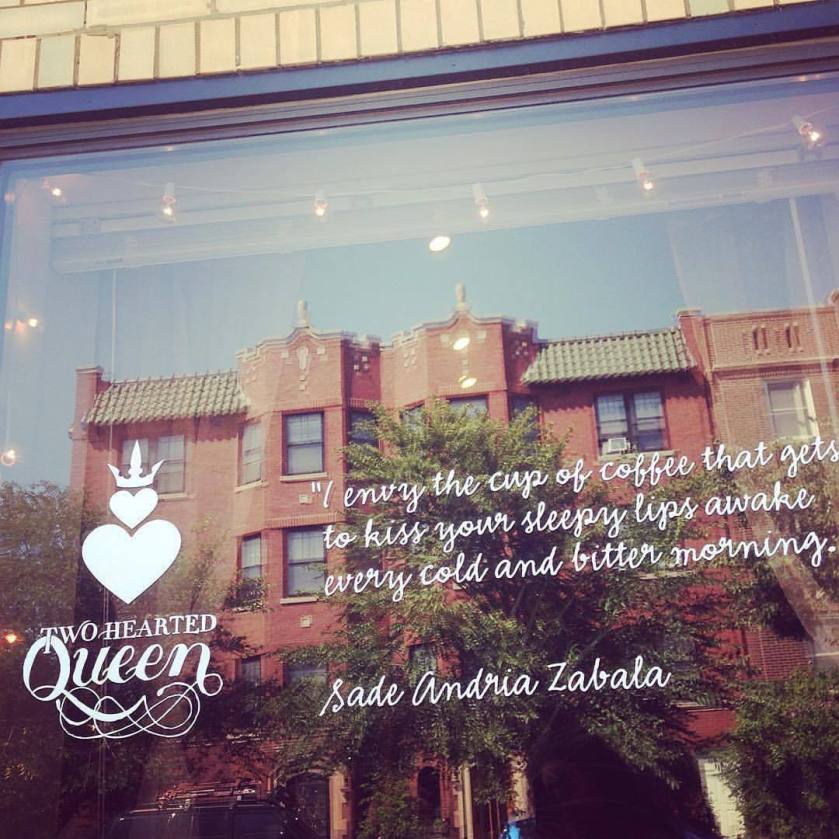 TWO HEARTED
Queen
"I envy the cup of coffee that gets
to kiss your sleepy lips awake
every cold and bitter morning.
Sade Andria Zabala